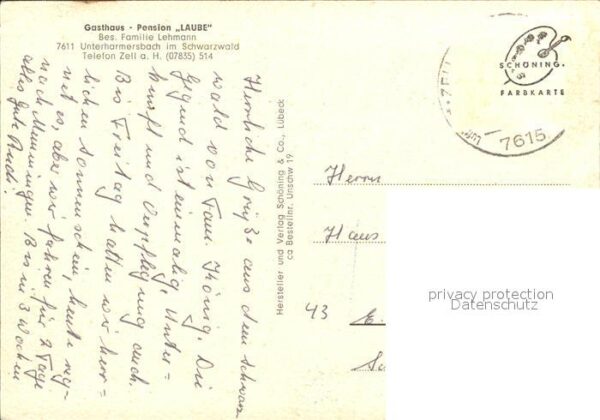 Gasthaus - Pension „LAUBE"
Bes. Familie Lehmann
7611 Unterharmersbach im Schwarzwald
Telefon Zell a. H. (07835) 514
Herrliche Grüße aus dem Schwarz
wald von Fam. König. Die
Gegend ist einmalig, Unter-
kunft und Verpflegung auch.
Bis Freitag hatten wir herr-
lichen Sonnenschein, heute reg-
net es, aber wir fahren für 2 Tage
nach Memmingen. Bis in 3 Wochen
alles Gute Rudi!
Hersteller und Verlag Schöning & Co., Lübeck
co Bestellnr. Unschw 19
SCHÖNING
FARBKARTE
7615
Herrn
Hans
43
privacy protection
Datenschutz